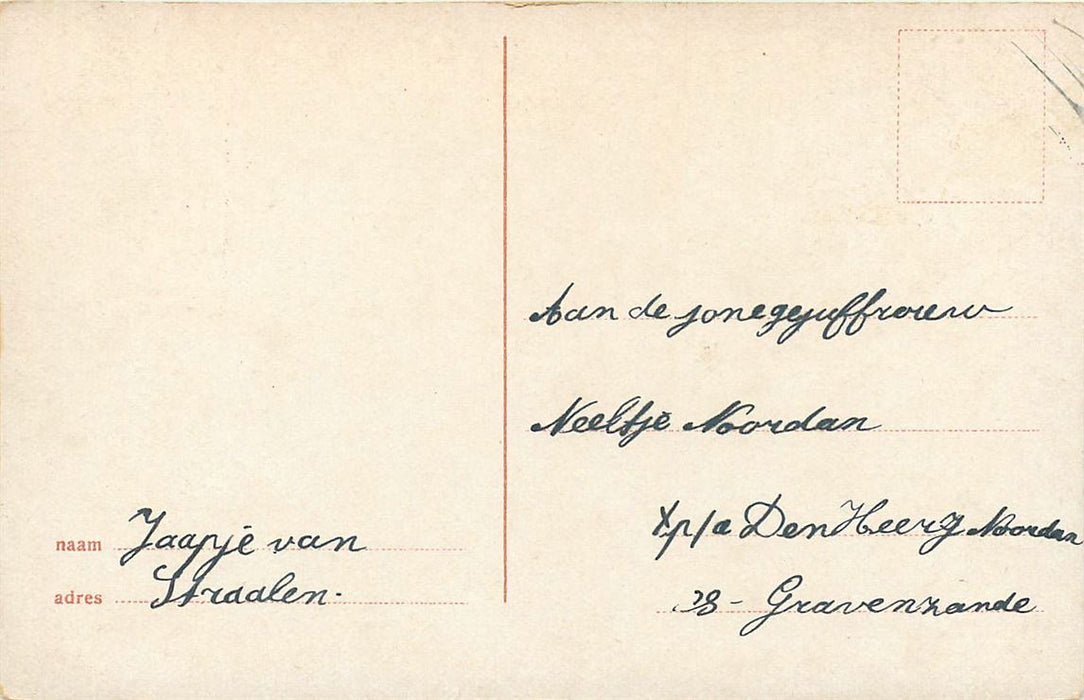 naam Jaapje van
adres Straalen.
Aan de jonegejuffrouw
Neeltje Noordan
p/a Den Heer J Noordan
's-Gravenzande